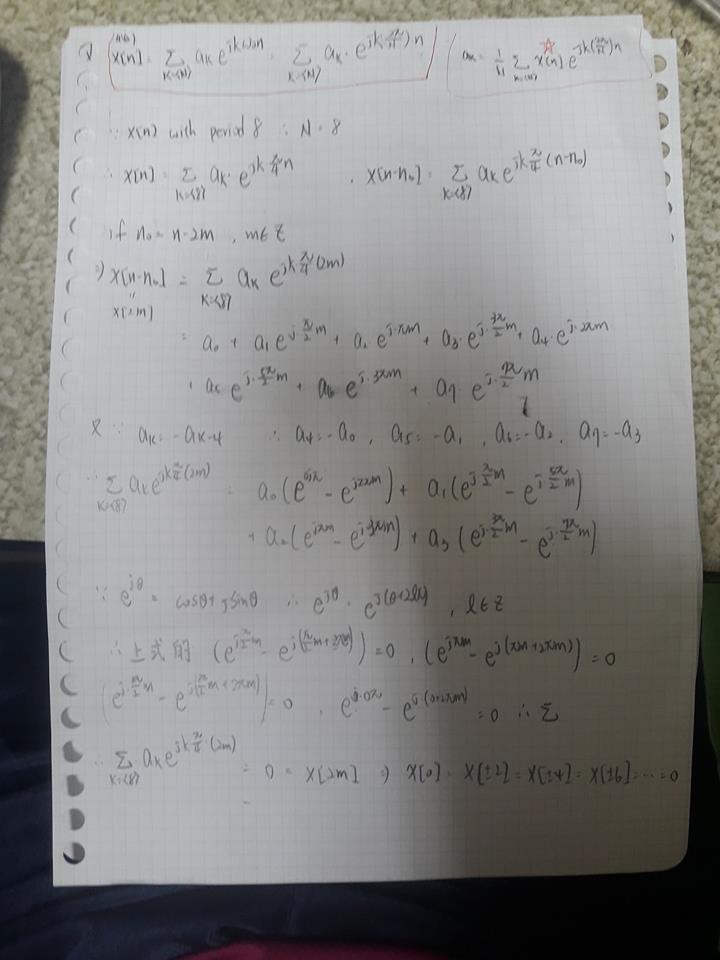 x[n] = Σ_{K=<N>} a_K e^{jkω₀n} = Σ_{K=<N>} a_K · e^{jk(2π/N)n}
a_K = 1/N Σ_{n=<N>} x[n] e^{-jk(2π/N)n}
∵ x[n] with period 8 ∴ N = 8
∴ x[n] = Σ_{K=<8>} a_K · e^{jk π/4 n} , x[n-n₀] = Σ_{K=<8>} a_K e^{jk π/4 (n-n₀)}
if n₀ = n-2m , m∈Z
⇒ x[n-n₀] = Σ_{K=<8>} a_K e^{jk π/4 (2m)}
"
x[2m]
= a₀ + a₁ e^{j·π/2 m} + a₂ e^{j·πm} + a₃ · e^{j·3π/2 m} + a₄ · e^{j·2πm}
+ a₅ e^{j·5π/2 m} + a₆ e^{j·3πm} + a₇ · e^{j·7π/2 m}
又 ∵ a_K = -a_{K-4} ∴ a₄ = -a₀ , a₅ = -a₁ , a₆ = -a₂ , a₇ = -a₃
∴ Σ_{K=<8>} a_K e^{jk π/4 (2m)} = a₀ (e^{0jπ} - e^{j2πm}) + a₁ (e^{j π/2 m} - e^{j·5π/2 m})
+ a₂ (e^{jπm} - e^{j·3πm}) + a₃ (e^{j·3π/2 m} - e^{j·7π/2 m})
∵ e^{jθ} = cosθ + jsinθ ∴ e^{jθ} = e^{j(θ+2lπ)} , l∈Z
∴ 上式的 (e^{j π/2 m} - e^{j(π/2 m+2πm)}) = 0 , (e^{jπm} - e^{j(πm+2πm)}) = 0
(e^{j·3π/2 m} - e^{j(3π/2 m+2πm)}) = 0 , e^{j·0π} - e^{j·(0+2πm)} = 0 ∴ Σ
∴ Σ_{K=<8>} a_K e^{jk π/4 ·(2m)} = 0 = x[2m] ⇒ x[0] = x[±2] = x[±4] = x[±6] = ... = 0